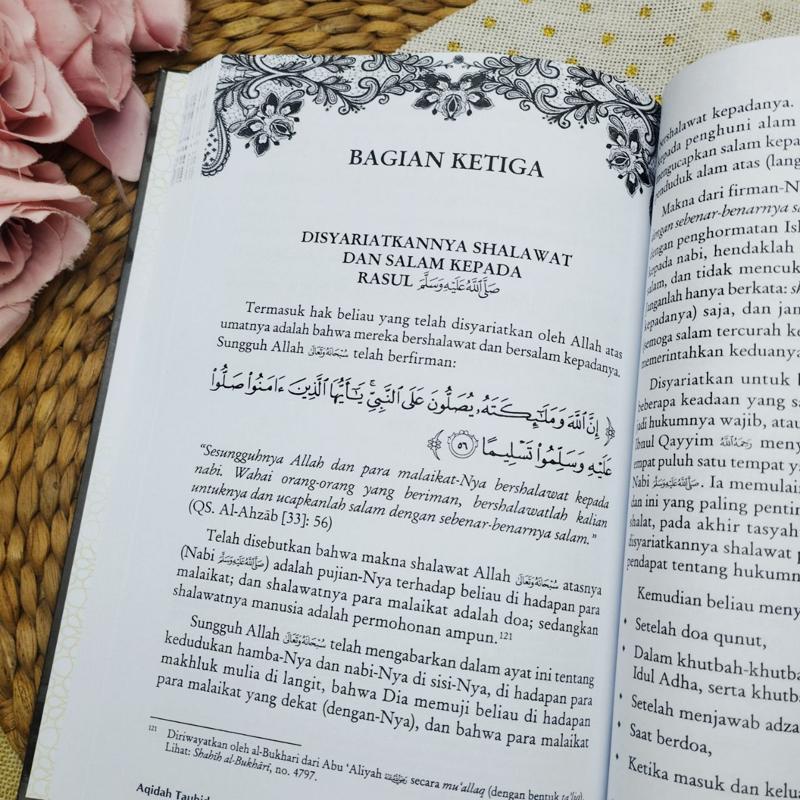 BAGIAN KETIGA
DISYARIATKANNYA SHALAWAT
DAN SALAM KEPADA
RASUL ﷺ
Termasuk hak beliau yang telah disyariatkan oleh Allah atas
umatnya adalah bahwa mereka bershalawat dan bersalam kepadanya.
Sungguh Allah سُبْحَانَهُ وَتَعَالَى telah berfirman:
﴿ إِنَّ ٱللَّهَ وَمَلَـٰٓئِكَتَهُۥ يُصَلُّونَ عَلَى ٱلنَّبِىِّ ۚ يَـٰٓأَيُّهَا ٱلَّذِينَ ءَامَنُوا۟ صَلُّوا۟
عَلَيْهِ وَسَلِّمُوا۟ تَسْلِيمًا ٥٦ ﴾
“Sesungguhnya Allah dan para malaikat-Nya bershalawat kepada
nabi. Wahai orang-orang yang beriman, bershalawatlah kalian
untuknya dan ucapkanlah salam dengan sebenar-benarnya salam.”
(QS. Al-Ahzāb [33]: 56)
Telah disebutkan bahwa makna shalawat Allah سُبْحَانَهُ وَتَعَالَى atasnya
(Nabi ﷺ) adalah pujian-Nya terhadap beliau di hadapan para
malaikat; dan shalawatnya para malaikat adalah doa; sedangkan
shalawatnya manusia adalah permohonan ampun.121
Sungguh Allah سُبْحَانَهُ وَتَعَالَى telah mengabarkan dalam ayat ini tentang
kedudukan hamba-Nya dan nabi-Nya di sisi-Nya, di hadapan para
makhluk mulia di langit, bahwa Dia memuji beliau di hadapan
para malaikat yang dekat (dengan-Nya), dan bahwa para malaikat
121 Diriwayatkan oleh al-Bukhari dari Abu ‘Aliyah secara mu‘allaq (dengan bentuk
Lihat: Shahīh al-Bukhārī, no. 4797.
Aqidah Tauhid
bershalawat kepadanya.
kepada penghuni alam
mengucapkan salam kepada
penduduk alam atas (lang
Makna dari firman-N
dengan sebenar-benarnya sa
dengan penghormatan Isl
kepada nabi, hendaklah
salam, dan tidak mencuk
janganlah hanya berkata: sh
kepadanya) saja, dan jan
semoga salam tercurah ke
memerintahkan keduanya
Disyariatkan untuk b
beberapa keadaan yang sa
jadi hukumnya wajib, atau
Ibnul Qayyim رَحِمَهُ ٱللَّهُ meny
empat puluh satu tempat ya
Nabi ﷺ. Ia memulain
dan ini yang paling pentin
shalat, pada akhir tasyah
disyariatkannya shalawat p
pendapat tentang hukumn
Kemudian beliau meny
• Setelah doa qunut,
• Dalam khutbah-khutba
Idul Adha, serta khutb
• Setelah menjawab adza
• Saat berdoa,
• Ketika masuk dan kelua